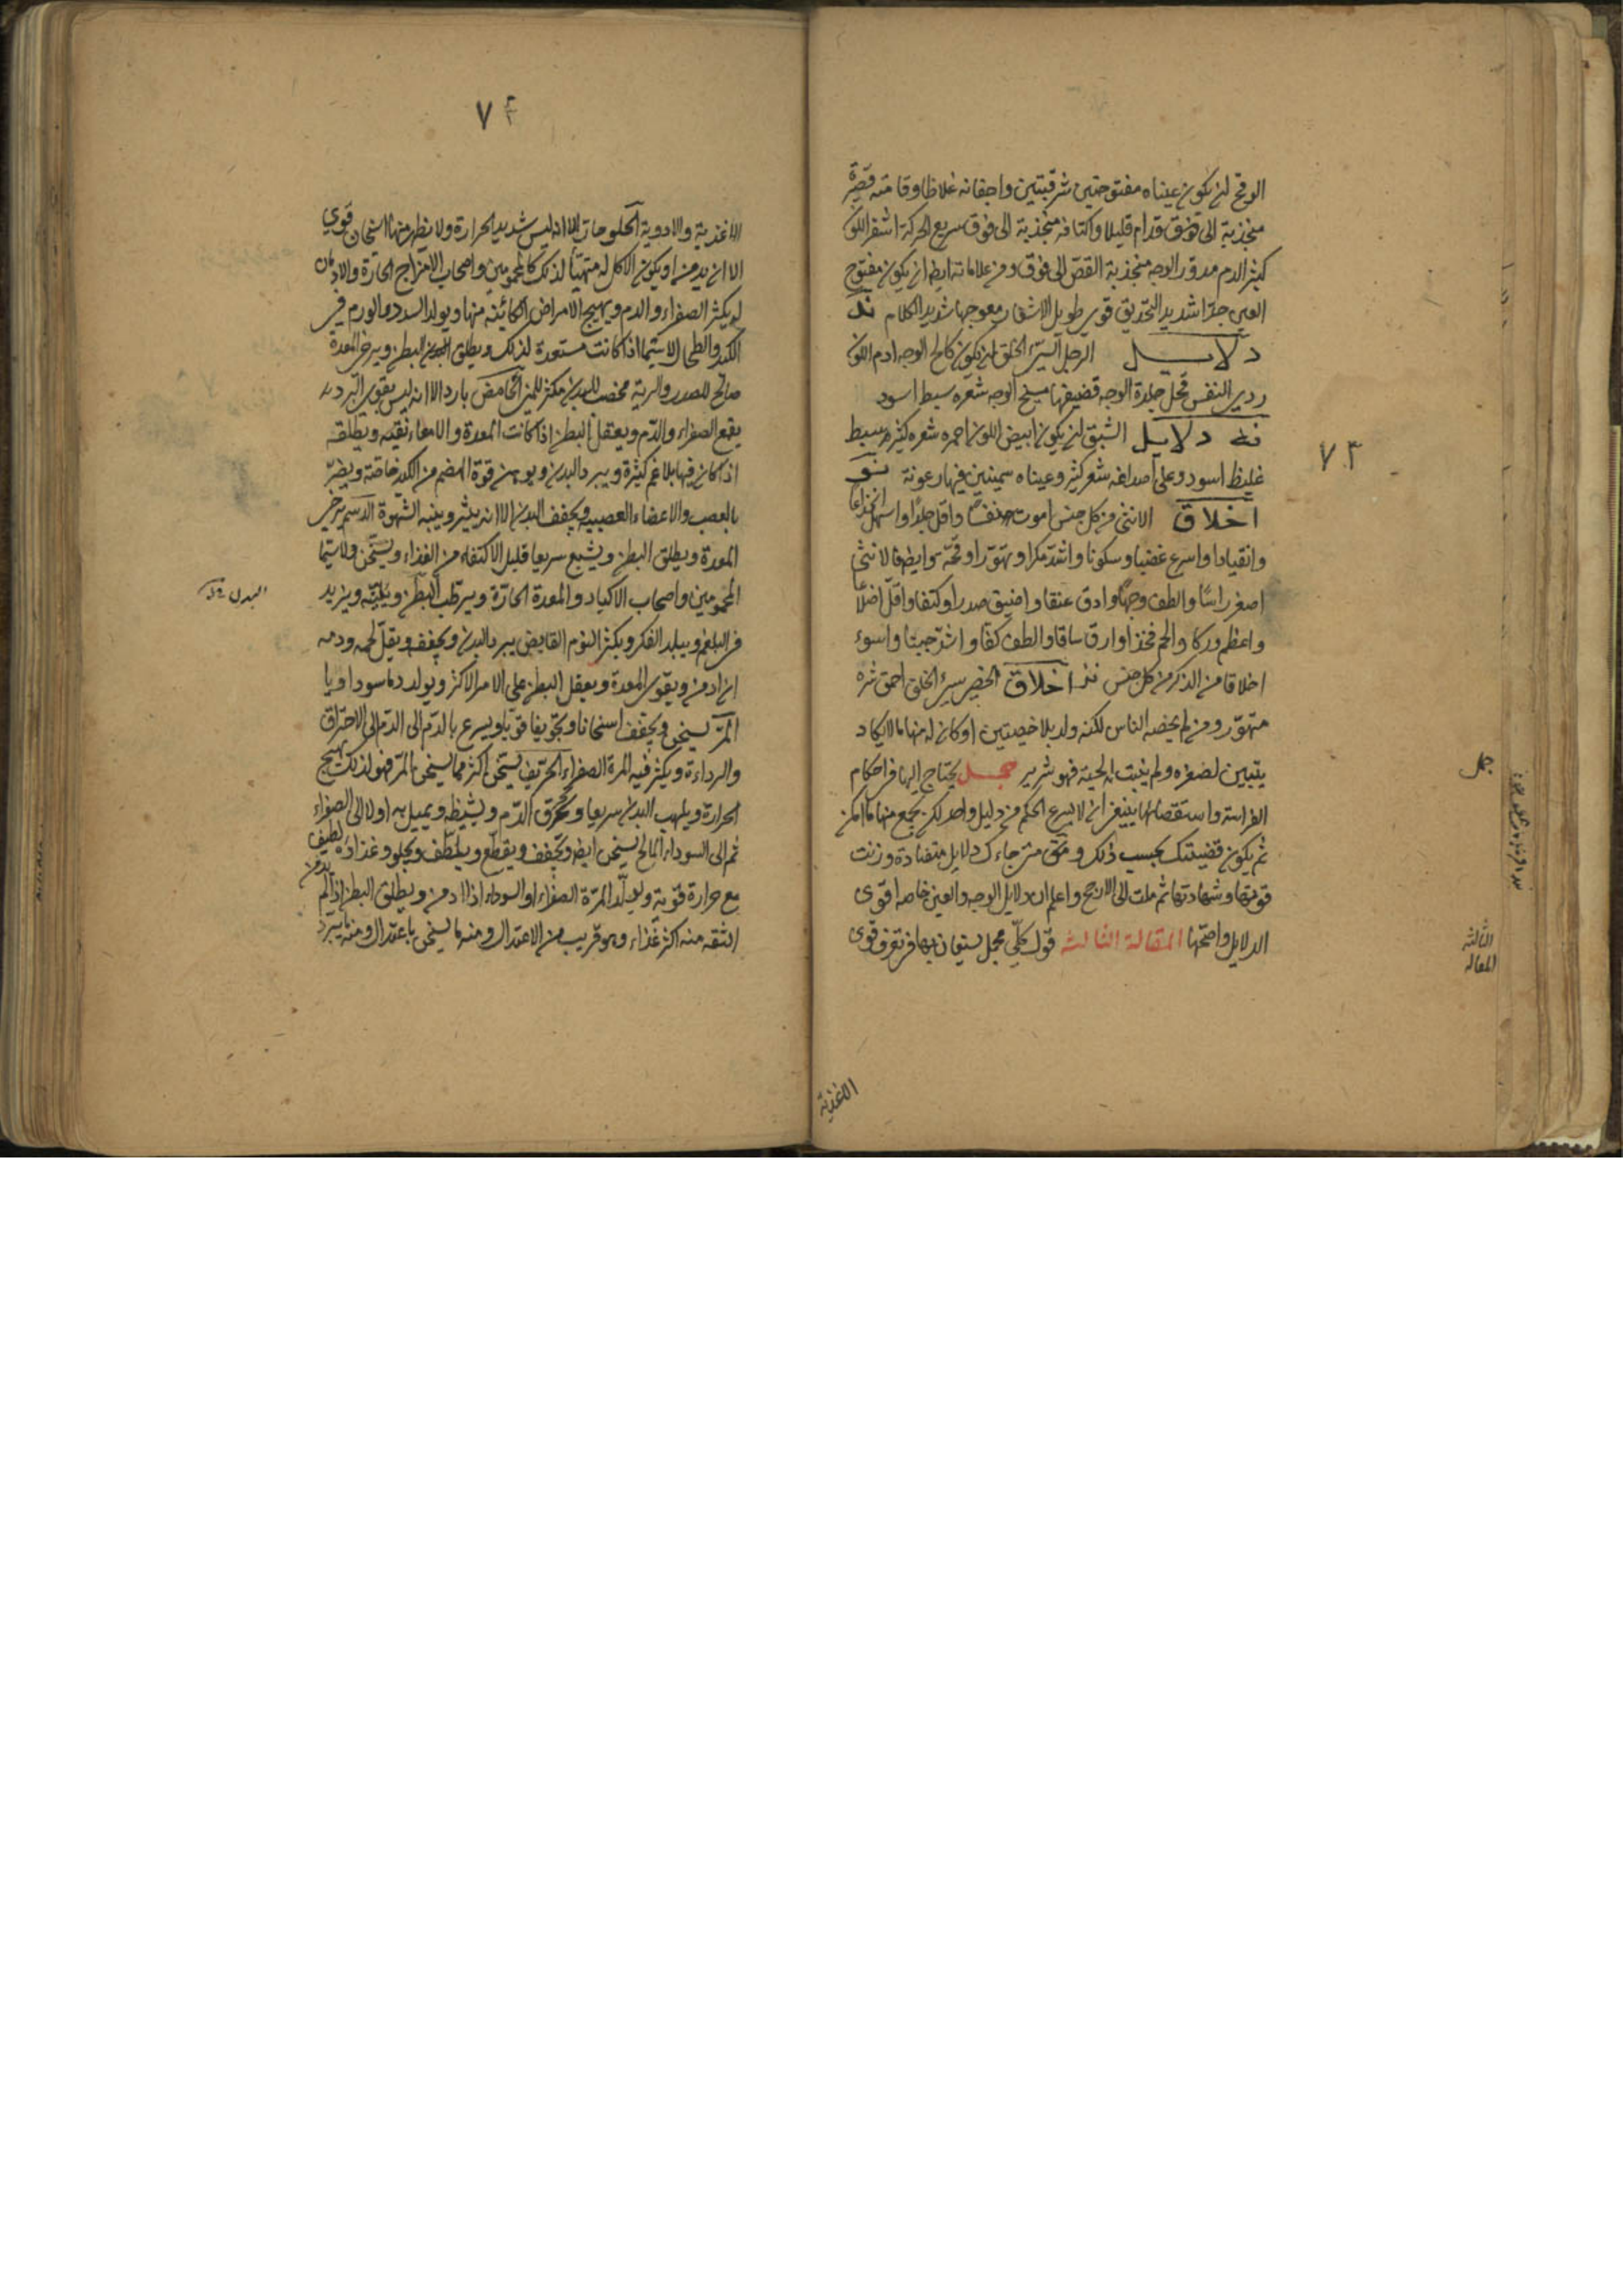 الوقح ان يكون عيناه مفتوحتين شرقيتين واجفانه غلاظا وقامته قصيرة
منجذبة الى فوق قدام قليلا واكتافه منجذبة الى فوق سريع الحركة اشقر اللون
كثير الدم مدور الوجه منجذبة القص الى فوق ومن علاماته ايضا ان يكون مفتوح
العين جدا شديد التحديق قوي طويل الاشفار معوجها شديد الكلام ند
دلايل الرجل السيئ الخلق ان يكون كالح الوجه ادم اللون
ردي النفس قحل جلدة الوجه قضيفها مسيخ الوجه شعره سبط اسود
نه دلايل الشبق ان يكون ابيض اللون احمره شعره كثير سبط
غليظ اسود وعلى اصداغه شعر كثير وعيناه سمينتين فيها رعونة نو
اخلاق الانثى من كل جنس اموت نفسا واقل جلدا واسهل انخداعا
وانقيادا واسرع غضبا وسكونا واشد مكرا وتهورا وقحة وايضا فالانثى
اصغر راسا والطف وجها وادق عنقا واضيق صدرا وكتفا واقل اضلاعا
واعظم وركا والحم فخذا وارق ساقا والطف كفا واشد جبنا واسوء
اخلاقا من الذكر من كل جنس نز اخلاق الخصي سيئ الخلق احمق شره
متهور ومن لم يخصه الناس لكنه ولد بلا خصيتين او كان له منهما ما لا يكاد
يتبين لصغره ولم ينبت له لحية فهو شرير جمل يحتاج اليها في احكام
الفراسة واستقصائها ينبغي ان لا يسرع الحكم من دليل واحد لكن يجمع منها ما امكن
ثم يكون قضيتك بحسب ذلك ومتى جاءك دلايل متضادة وزنت
قوتها وشهادتها ثم ملت الى الارجح واعلم ان دلايل الوجه والعين خاصة اقوى
الدلايل واصحها المقالة الثالثة قول كلي مجمل يستعان بها في تعرف قوى
الاغذية
٧٣
جمل
الثالثة
المقالة
٧٣
الاغذية والادوية الحلو حار الا انه ليس شديد الحرارة ولا يظهر منها اسخان قوي
الا ان يدمن او يكون الاكل له متهيأ لذلك كالمحمومين واصحاب الامزاج الحارة والادمان
له يكثر الصفراء والدم ويهيج الامراض الكائنة منها ويولد السدد والورم في
الكبد والطحال لاسيما اذا كانت مستعدة لذلك ويطلق البطن ويرخي المعدة
صالح للصدر والرية مخصب للبدن مكثر للمني الحامض بارد الا انه ليس بقوي البرد
يقمع الصفراء والدم ويعقل البطن اذا كانت المعدة والامعاء نقية ويطلقه
اذا كان فيها بلاغم كثيرة ويبرد البدن ويوهن قوة الهضم من الكبد خاصة ويضر
بالعصب والاعضاء العصبية ويجفف البدن الا انه ينبه الشهوة الدسم يرخي
المعدة ويطلق البطن ويشبع سريعا قبل الاكتفاء من الغذاء ويسخن ولاسيما
المحمومين واصحاب الاكباد والمعدة الحارة ويرطب البطن ويلينه ويزيد
في البلغم ويبلد الفكر ويكثر النوم القابض يبرد البدن ويجفف ويقل لحمه ودمه
ان ادمن ويقوي المعدة ويعقل البطن على الامر الاكثر ويولد دما سوداويا
المر يسخن ويجفف اسخانا وتجفيفا قويا ويسرع بالدم الى الاحتراق
والرداءة ويكثر فيه المرة الصفراء الحريف يسخن اكثر مما يسخن المر فهو لذلك يهيج
الحرارة ويلهب البدن سريعا ويحرق الدم ويشيطه ويميل به اولا الى الصفراء
ثم الى السوداء المالح يسخن ايضا ويجفف ويقطع ويلطف ويجلو وغذاؤه لطيف
مع حرارة قوية ويولد المرة الصفراء او السوداء اذا ادمن ويطلق البطن اذا لم يدمن
التفه منه اكثر غذاء وهو قريب من الاعتدال ومنه ما يسخن باعتدال ومنه ما يبرد